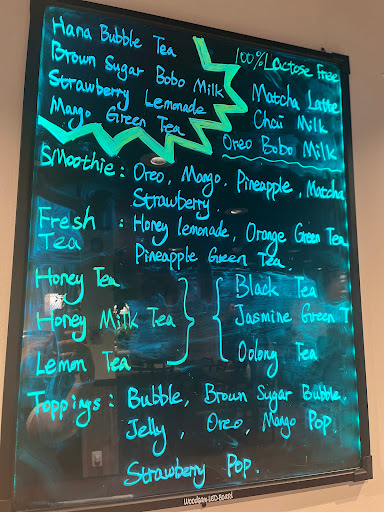 Hana Bubble Tea
Brown Sugar Bobo Milk
Strawberry Lemonade
Mango Green Tea
100% Lactose Free
Matcha Latte
Chai Milk
Oreo Bobo Milk
Smoothie: Oreo, Mango, Pineapple, Matcha
Strawberry
Fresh Tea : Honey lemonade, Orange Green Tea
Pineapple Green Tea
Honey Tea
Honey Milk Tea
Lemon Tea
Black Tea
Jasmine Green T
Oolong Tea
Toppings: Bubble, Brown Sugar Bubble.
Jelly, Oreo, Mango Pop.
Strawberry Pop.